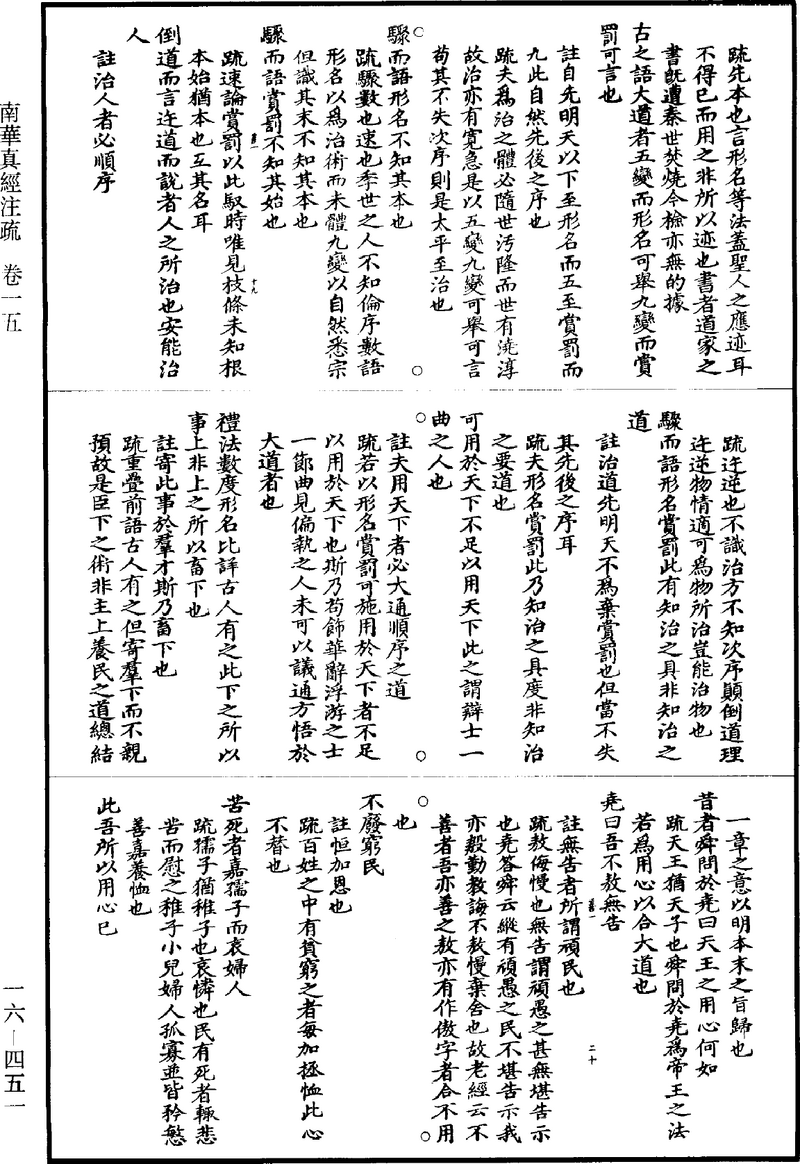 疏先本也言形名等法蓋聖人之應迹耳
不得已而用之非所以迹也書者道家之
書旣遭秦世焚燒今檢亦無的據
古之語大道者五變而形名可舉九變而賞
罰可言也
註自先明天以下至形名而五至賞罰而
九此自然先後之序也
疏夫爲治之體必隨世汚隆而世有澆淳
故治亦有寬急是以五變九變可舉可言
苟其不失次序則是太平至治也
驟而語形名不知其本也
疏驟數也速也季世之人不知倫序數語
形名以爲治術而未體九變以自然悉宗
但識其末不知其本也
驟而語賞罰不知其始也
疏速論賞罰以此馭時唯見枝條未知根
本始猶本也互其名耳
倒道而言迕道而說者人之所治也安能治
人
註治人者必順序
南華真經注疏 卷一五
疏迕逆也不識治方不知次序顚倒道理
迕逆物情適可爲物所治豈能治物也
驟而語形名賞罰此有知治之具非知治之
道
註治道先明天不爲棄賞罰也但當不失
其先後之序耳
疏夫形名賞罰此乃知治之具度非知治
之要道也
可用於天下不足以用天下此之謂辯士一
曲之人也
註夫用天下者必大通順序之道
疏若以形名賞罰可施用於天下者不足
以用於天下也斯乃苟飾華辭浮游之士
一節曲見偏執之人未可以議通方悟於
大道者也
禮法數度形名比詳古人有之此下之所以
事上非上之所以畜下也
註寄此事於羣才斯乃畜下也
疏重疊前語古人有之但寄羣下而不親
預故是臣下之術非主上養民之道總結
一章之意以明本末之旨歸也
昔者舜問於堯曰天王之用心何如
疏天王猶天子也舜問於堯爲帝王之法
若爲用心以合大道也
堯曰吾不敖無告
註無告者所謂頑民也
疏敖侮慢也無告謂頑愚之甚無堪告示
也堯答舜云縱有頑愚之民不堪告示我
亦殷勤教誨不敖慢棄舍也故老經云不
善者吾亦善之敖亦有作傲字者合不用
也
不廢窮民
註恒加恩也
疏百姓之中有貧窮之者每加拯恤此心
不替也
苦死者嘉孺子而哀婦人
疏孺子猶稚子也哀憐也民有死者輒悲
苦而慰之稚子小兒婦人孤寡並皆矜愍
善嘉養恤也
此吾所以用心已
一六—四五一
十九
二十